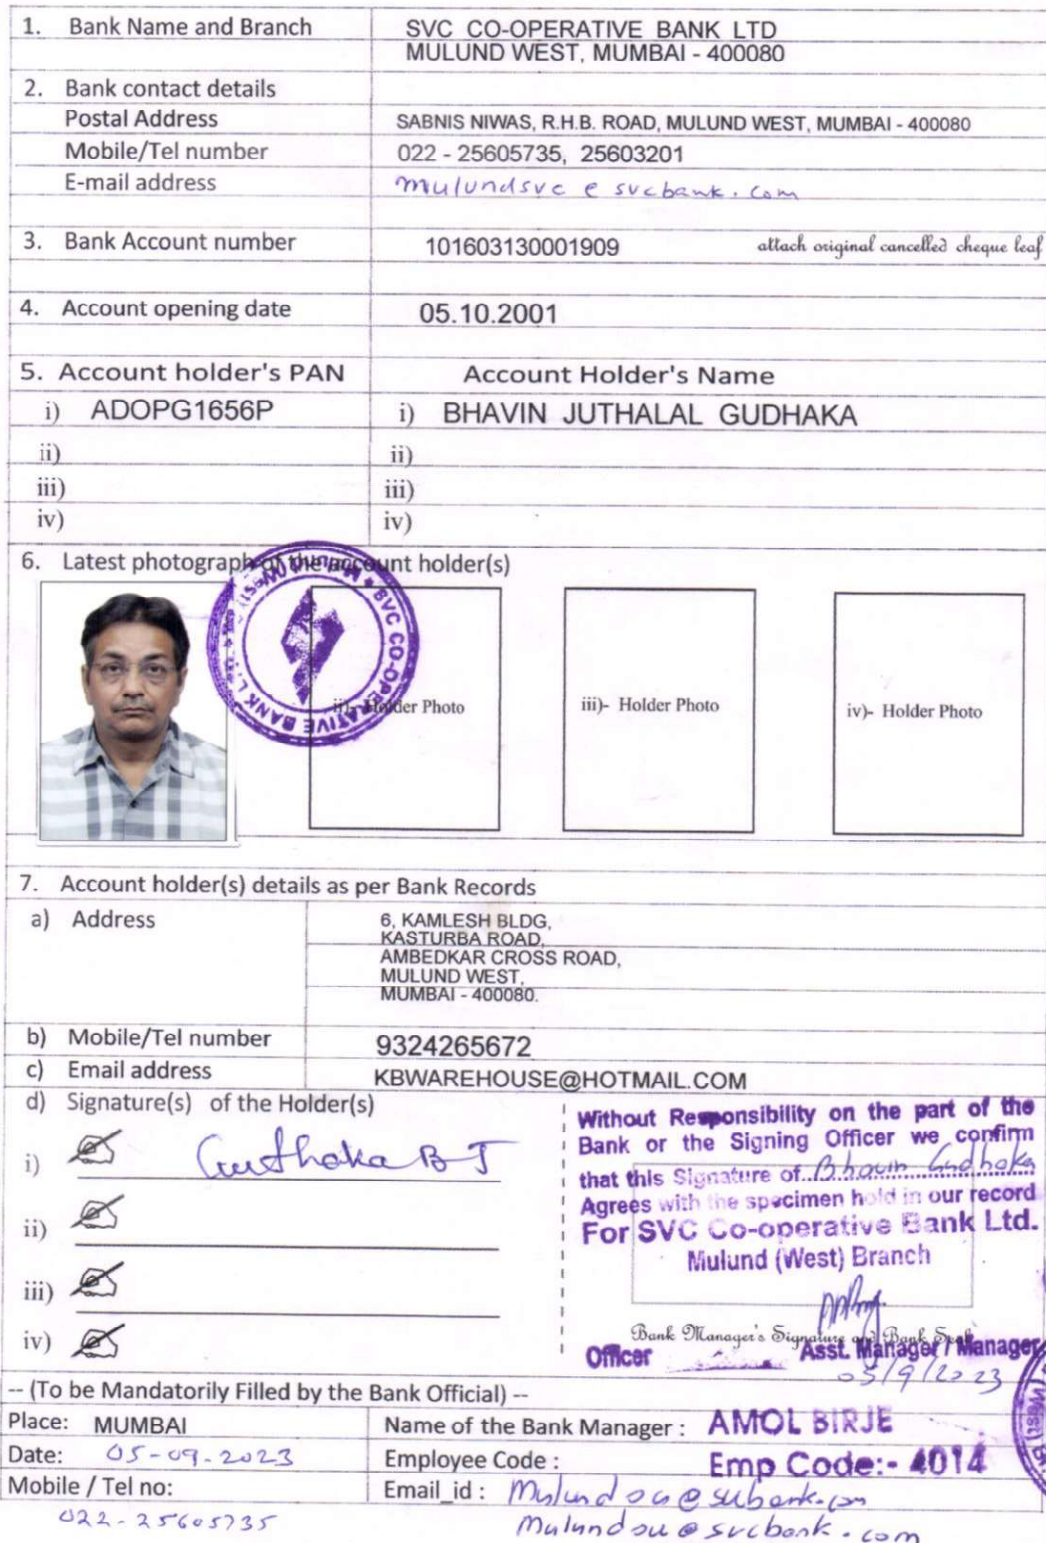 1. Bank Name and Branch SVC CO-OPERATIVE BANK LTD
MULUND WEST, MUMBAI - 400080
2. Bank contact details
Postal Address SABNIS NIWAS, R.H.B. ROAD, MULUND WEST, MUMBAI - 400080
Mobile/Tel number 022 - 25605735, 25603201
E-mail address mulundsvc e svcbank.com
3. Bank Account number 101603130001909 attach original cancelled cheque leaf
4. Account opening date 05.10.2001
5. Account holder's PAN Account Holder's Name
i) ADOPG1656P i) BHAVIN JUTHALAL GUDHAKA
ii) ii)
iii) iii)
iv) iv)
6. Latest photograph of the account holder(s)
CO-OPERATIVE BANK
ii)- Holder Photo iii)- Holder Photo iv)- Holder Photo
7. Account holder(s) details as per Bank Records
a) Address 6, KAMLESH BLDG,
KASTURBA ROAD,
AMBEDKAR CROSS ROAD,
MULUND WEST,
MUMBAI - 400080.
b) Mobile/Tel number 9324265672
c) Email address KBWAREHOUSE@HOTMAIL.COM
d) Signature(s) of the Holder(s)
i) Gudhaka B J
ii)
iii)
iv)
Without Responsibility on the part of the
Bank or the Signing Officer we confirm
that this Signature of Bhavin Gudhaka
Agrees with the specimen hold in our record
For SVC Co-operative Bank Ltd.
Mulund (West) Branch
Bank Manager's Signature and Bank Seal
Officer Asst. Manager / Manager
05/9/2023
-- (To be Mandatorily Filled by the Bank Official) --
Place: MUMBAI Name of the Bank Manager : AMOL BIRJE
Date: 05-09-2023 Employee Code : Emp Code:- 4014
Mobile / Tel no: Email_id :
022-25605735 @svcbank.com